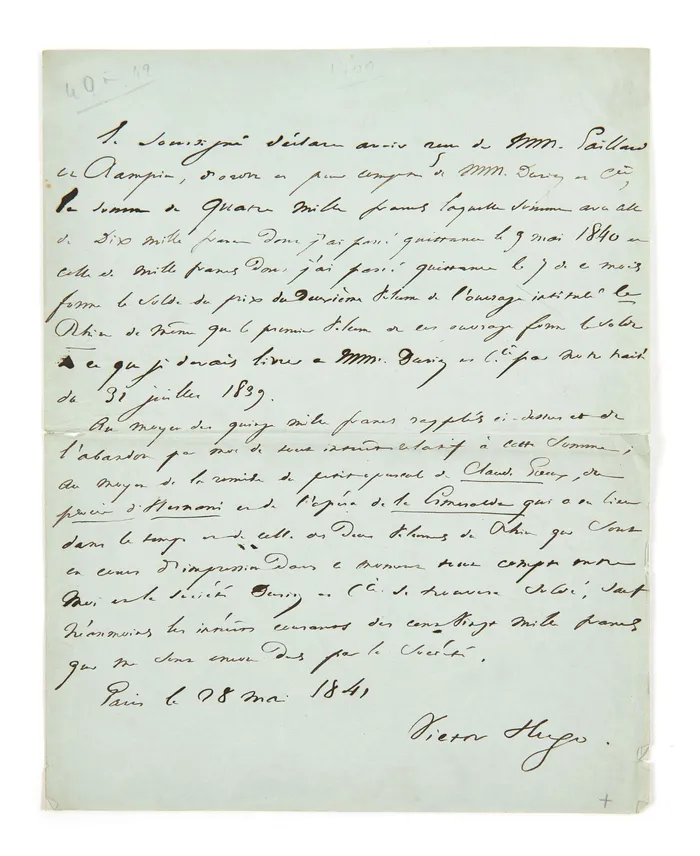 40 49
le soussigné déclare avoir reçu de MM. Gaillard
et Rampin, d'ordre et pour compte de MM. Duriez et Cie,
la somme de Quatre mille francs laquelle somme avec celle
de Dix mille francs dont j'ai passé quittance le 9 mai 1840 et
celle de mille francs dont j'ai passé quittance le 7 de ce mois
forme le solde du prix du Deuxième volume de l'ouvrage intitulé le
Rhin de même que le premier volume de cet ouvrage forme le solde
de ce que je devais livrer à MM. Duriez et Cie par notre traité
du 31 juillet 1839.
Au moyen des quinze mille francs rappelés ci-dessus et de
l'abandon par moi de tous intérêts relatif à cette somme ;
au moyen de la remise de petits de Claude Gueux, du
procès d'Hernani et de l'opéra de la Esmeralda qui a eu lieu
dans le temps et de celle des Deux volumes du Rhin qui sont
en cours d'impression Dans ce moment tout compte entre
moi et la société Duriez et Cie se trouvera soldé, sauf
néanmoins les intérêts courants des cent vingt mille francs
qui me sont encore dus par la société.
Paris le 28 mai 1841
Victor Hugo.
+